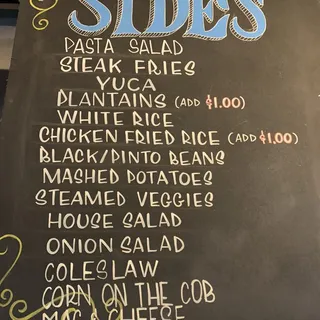 SIDES
PASTA SALAD
STEAK FRIES
YUCA
PLANTAINS (ADD $1.00)
WHITE RICE
CHICKEN FRIED RICE (ADD $1.00)
BLACK/PINTO BEANS
MASHED POTATOES
STEAMED VEGGIES
HOUSE SALAD
ONION SALAD
COLESLAW
CORN ON THE COB
MAC & CHEESE